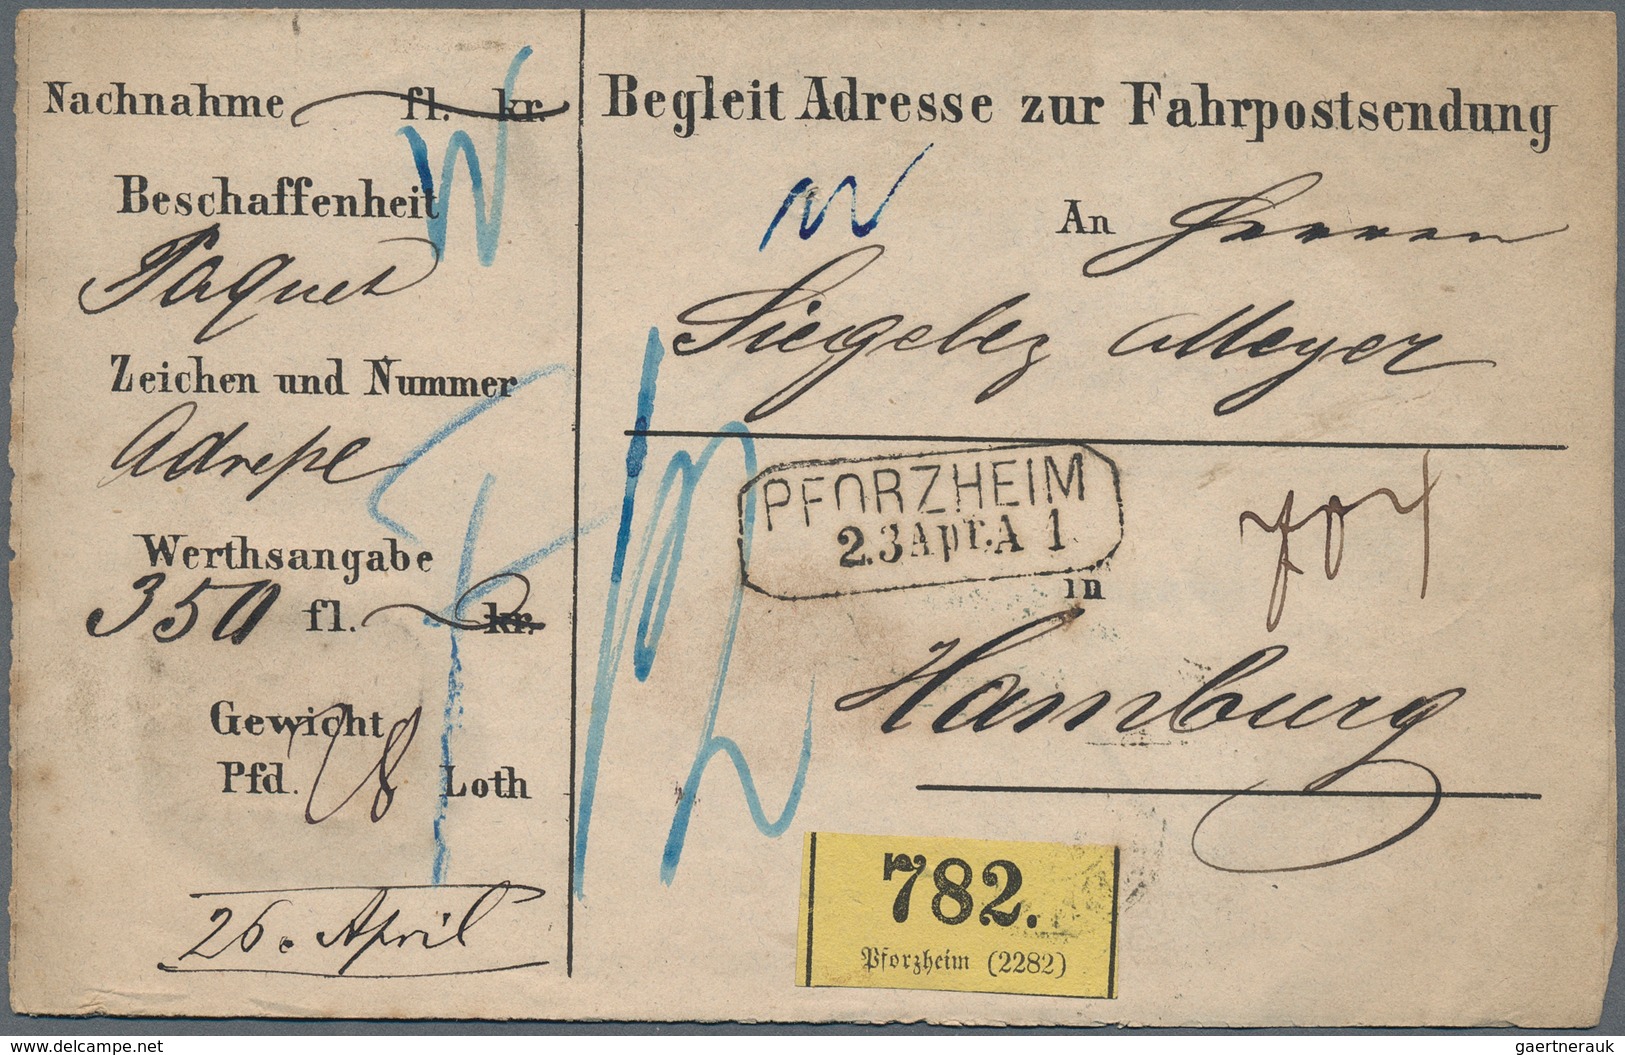 Nachnahme fl. kr.
Beschaffenheit
Paquet
Zeichen und Nummer
Adresse
Werthsangabe
350 fl. kr.
Gewicht
Pfd. 8 Loth
26. April
Begleit Adresse zur Fahrpostsendung
An Herren
Meyer
PFORZHEIM
23 Apr. A 1
in
Hamburg
782.
Pforzheim (2282)
www.delcampe.net
gaertnerauk